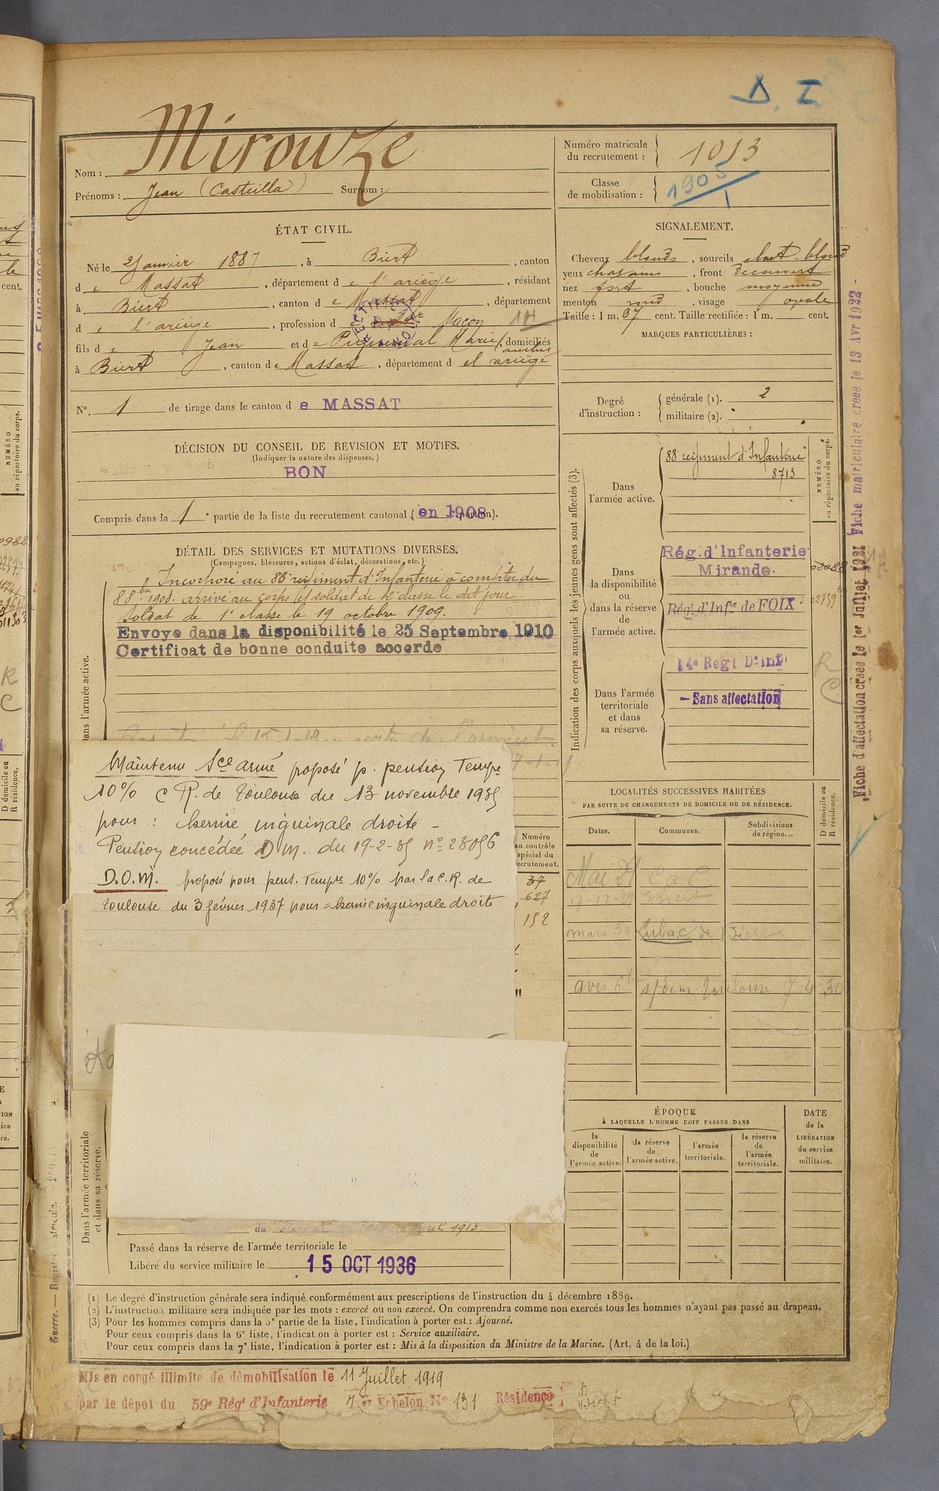 D. I
Mirouze
Nom :
Prénoms : Jean (Casteilla) Surnom :
Numéro matricule
du recrutement : 1013
Classe
de mobilisation : 1905
ÉTAT CIVIL.
Né le 2 Janvier 1887, à Biert, canton
de Massat, département de l'ariège, résidant
à Biert, canton de Massat, département
de l'ariège, profession de Maçon
fils de Jean et de Marie, domiciliés
à Biert, canton de Massat, département de l'ariège
N°. 1 de tirage dans le canton de MASSAT
DÉCISION DU CONSEIL DE REVISION ET MOTIFS.
(Indiquer la nature des dispenses.)
BON
Compris dans la 1e partie de la liste du recrutement cantonal (en 1908).
DÉTAIL DES SERVICES ET MUTATIONS DIVERSES.
(Campagnes, blessures, actions d'éclat, décorations, etc.)
Incorporé au 88e régiment d'Infanterie à compter du
8 8bre 1908. arrivé au corps et soldat de 2e classe le dit jour.
Soldat de 1e classe le 19 octobre 1909.
Envoyé dans la disponibilité le 25 Septembre 1910
Certificat de bonne conduite accordé
Dans l'armée active.
Maintenu Sce armé proposé p. pension Tempre
10% C R. de Toulouse du 13 novembre 1935
pour : hernie inguinale droite -
Pension concédée D M. du 19-2-35 n° 28056
D.O.M. proposé pour pens. Tempre 10% par la C.R. de
Toulouse du 3 février 1937 pour = hernie inguinale droite
Dans l'armée territoriale
et dans sa réserve.
Passé dans la réserve de l'armée territoriale le
Libéré du service militaire le 15 OCT 1936
SIGNALEMENT.
Cheveux blonds, sourcils chat. blond
yeux chatains, front découvert
nez fort, bouche moyenne
menton rond, visage ovale
Taille : 1 m. 67 cent. Taille rectifiée : 1 m. cent.
MARQUES PARTICULIÈRES :
Degré
d'instruction :
générale (1). 2
militaire (2).
Indication des corps auxquels les jeunes gens sont affectés (3).
NUMÉRO
au répertoire du corps.
Dans
l'armée active.
88 régiment d'Infanterie
8713
Dans
la disponibilité
ou
dans la réserve
de
l'armée active.
Rég. d'Infanterie
Mirande.
Rég. d'Infie de FOIX.
Dans l'armée
territoriale
et dans
sa réserve.
14e Regt D'inf
- Sans affectation
R
C
LOCALITÉS SUCCESSIVES HABITÉES
PAR SUITE DE CHANGEMENTS DE DOMICILE OU DE RÉSIDENCE.
D domicile ou
R résidence.
Dates.
Communes.
Subdivisions
de région.
mars 30
Numéro
au contrôle
spécial du
recrutement.
37
627
152
ÉPOQUE
À LAQUELLE L'HOMME DOIT PASSER DANS
la
disponibilité
de
l'armée active.
la réserve
de
l'armée active.
l'armée
territoriale.
la réserve
de
l'armée
territoriale.
DATE
de la
LIBÉRATION
du service
militaire.
(1) Le degré d'instruction générale sera indiqué conformément aux prescriptions de l'instruction du 4 décembre 1889.
(2) L'instruction militaire sera indiquée par les mots : exercé ou non exercé. On comprendra comme non exercés tous les hommes n'ayant pas passé au drapeau.
(3) Pour les hommes compris dans la 5e partie de la liste, l'indication à porter est : Ajourné.
Pour ceux compris dans la 6e liste, l'indication à porter est : Service auxiliaire.
Pour ceux compris dans la 7e liste, l'indication à porter est : Mis à la disposition du Ministre de la Marine. (Art. 4 de la loi.)
Mis en congé illimité de démobilisation le 11 Juillet 1919
par le dépot du 59e Rég' d'Infanterie Echelon N° 131 Résidence : Biert
Fiche d'affectation créée le 1er Juillet 1921 Fiche matriculaire créée le 13 Avr 1922